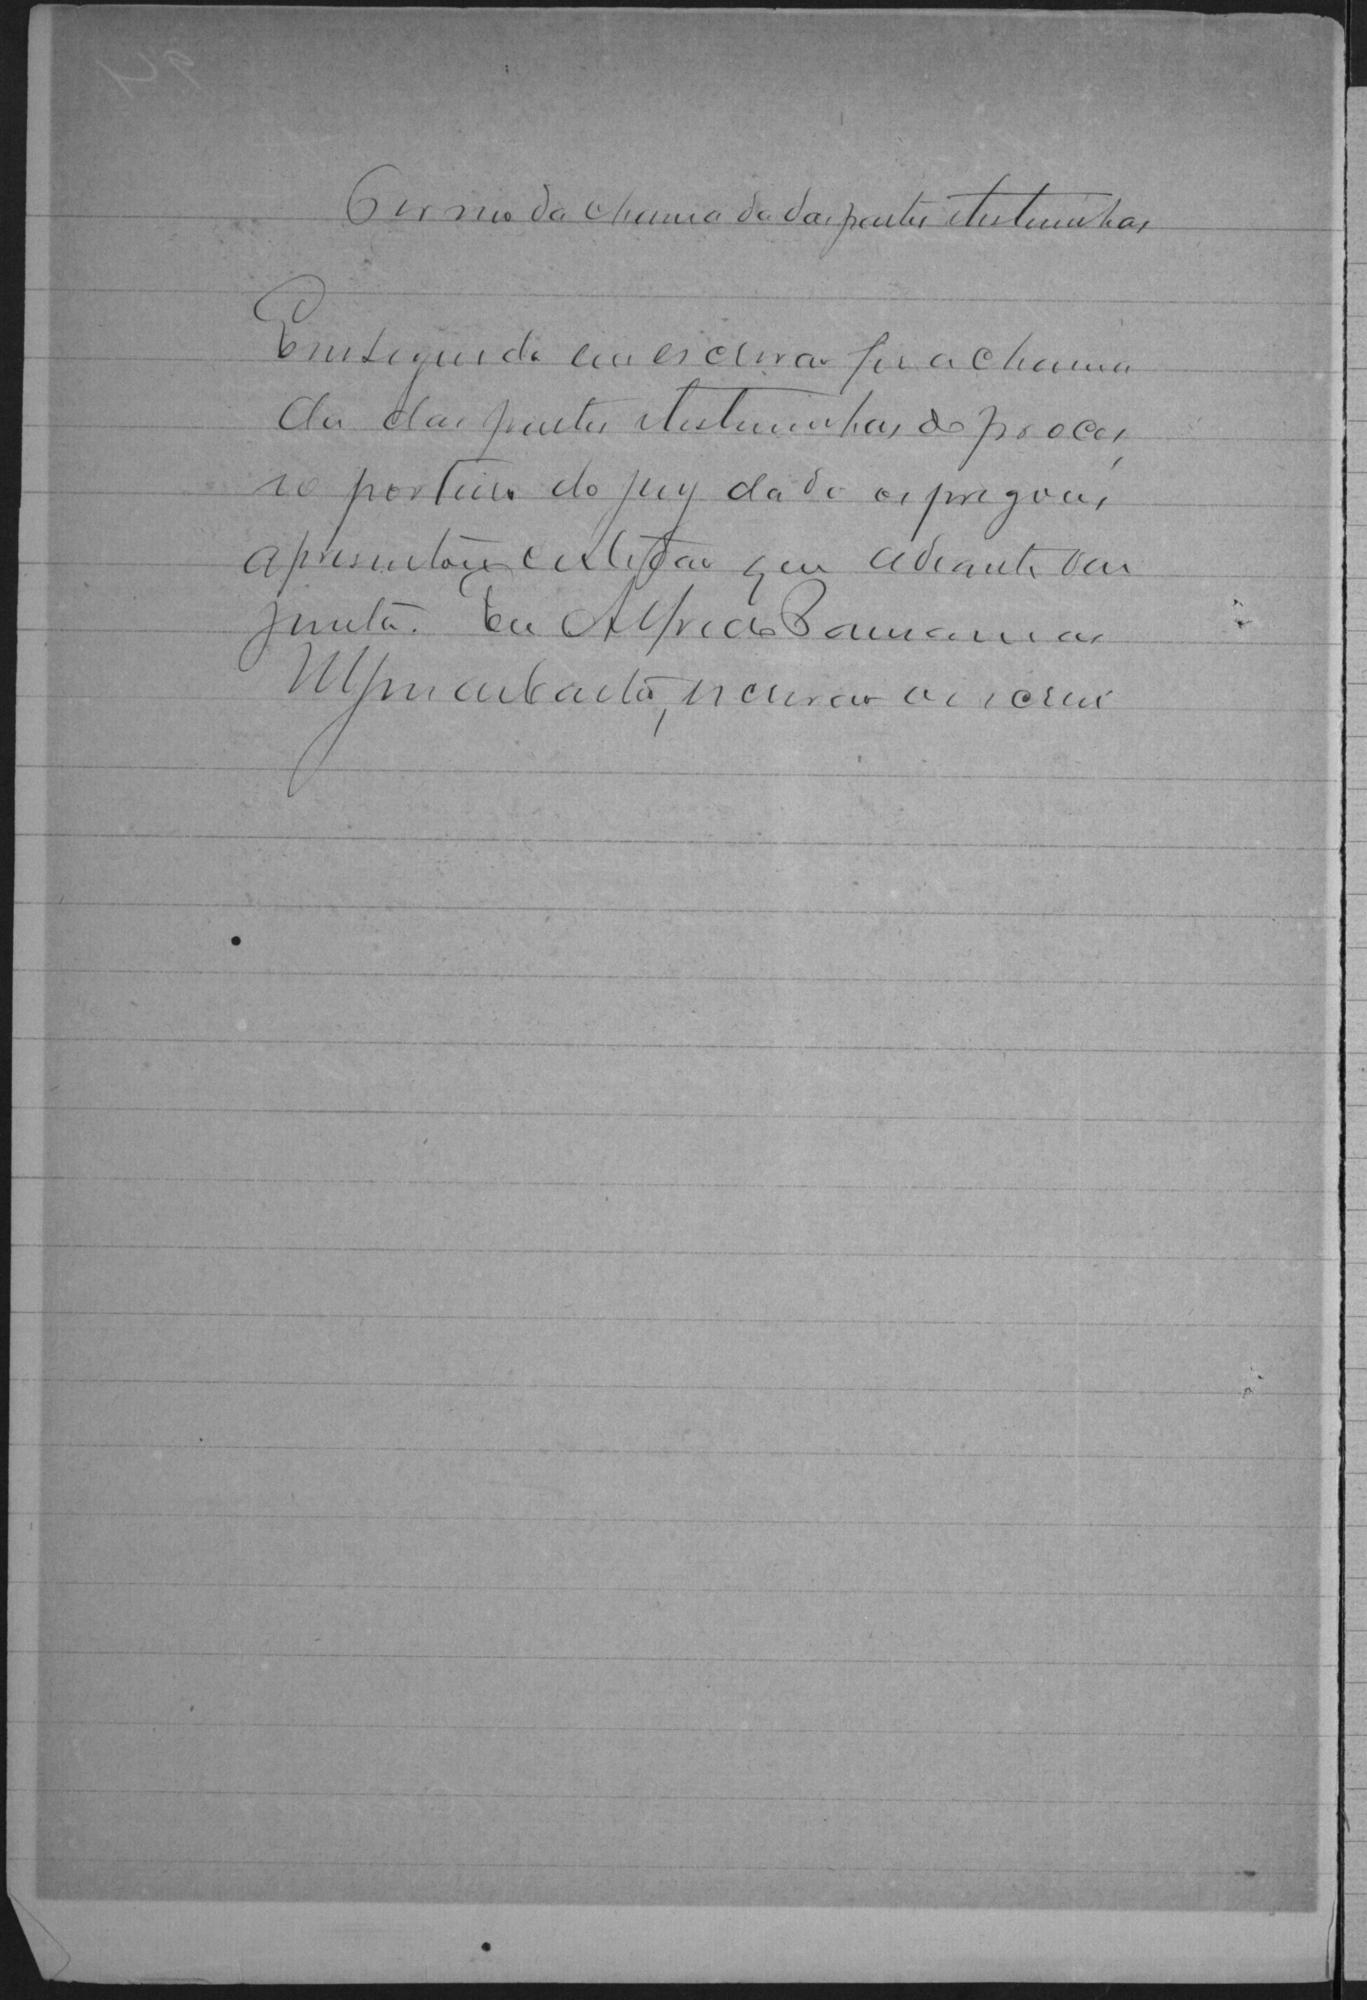 Termo da chamada das partes e testemunhas
Em seguida eu escrivão fis a chama
da das partes e testemunhas do proces,
so porteiro do juiz dado os pregões,
apresentou certidão que adeante vai
junta. Eu Alfredo
escrivão o escrevi